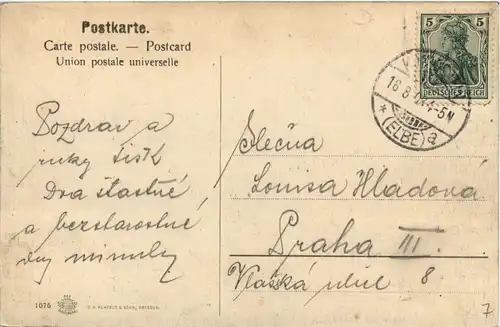 Postkarte.
Carte postale. — Postcard
Union postale universelle
5 5
DEUTSCHES REICH
16 8 4-5N
* (ELBE) a
Pozdrav a
ruky tisk
Dva šťastné
a bezstarostné
dny minuly
Slečna
Louisa Hladová
Praha III.
Vlašská ulice 8
1076
DRESDEN.
7